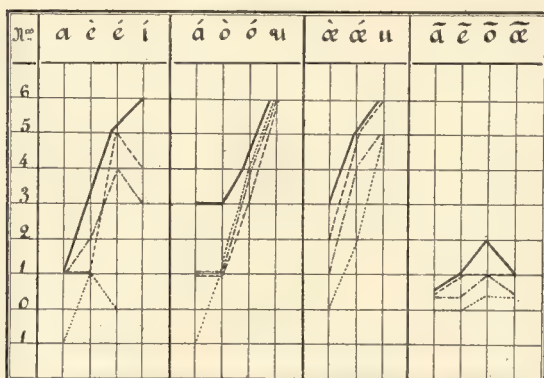 Nos a è é í á ò ó u æ̀ ǽ u ã ẽ õ æ̃
6
5
4
3
2
1
0
1